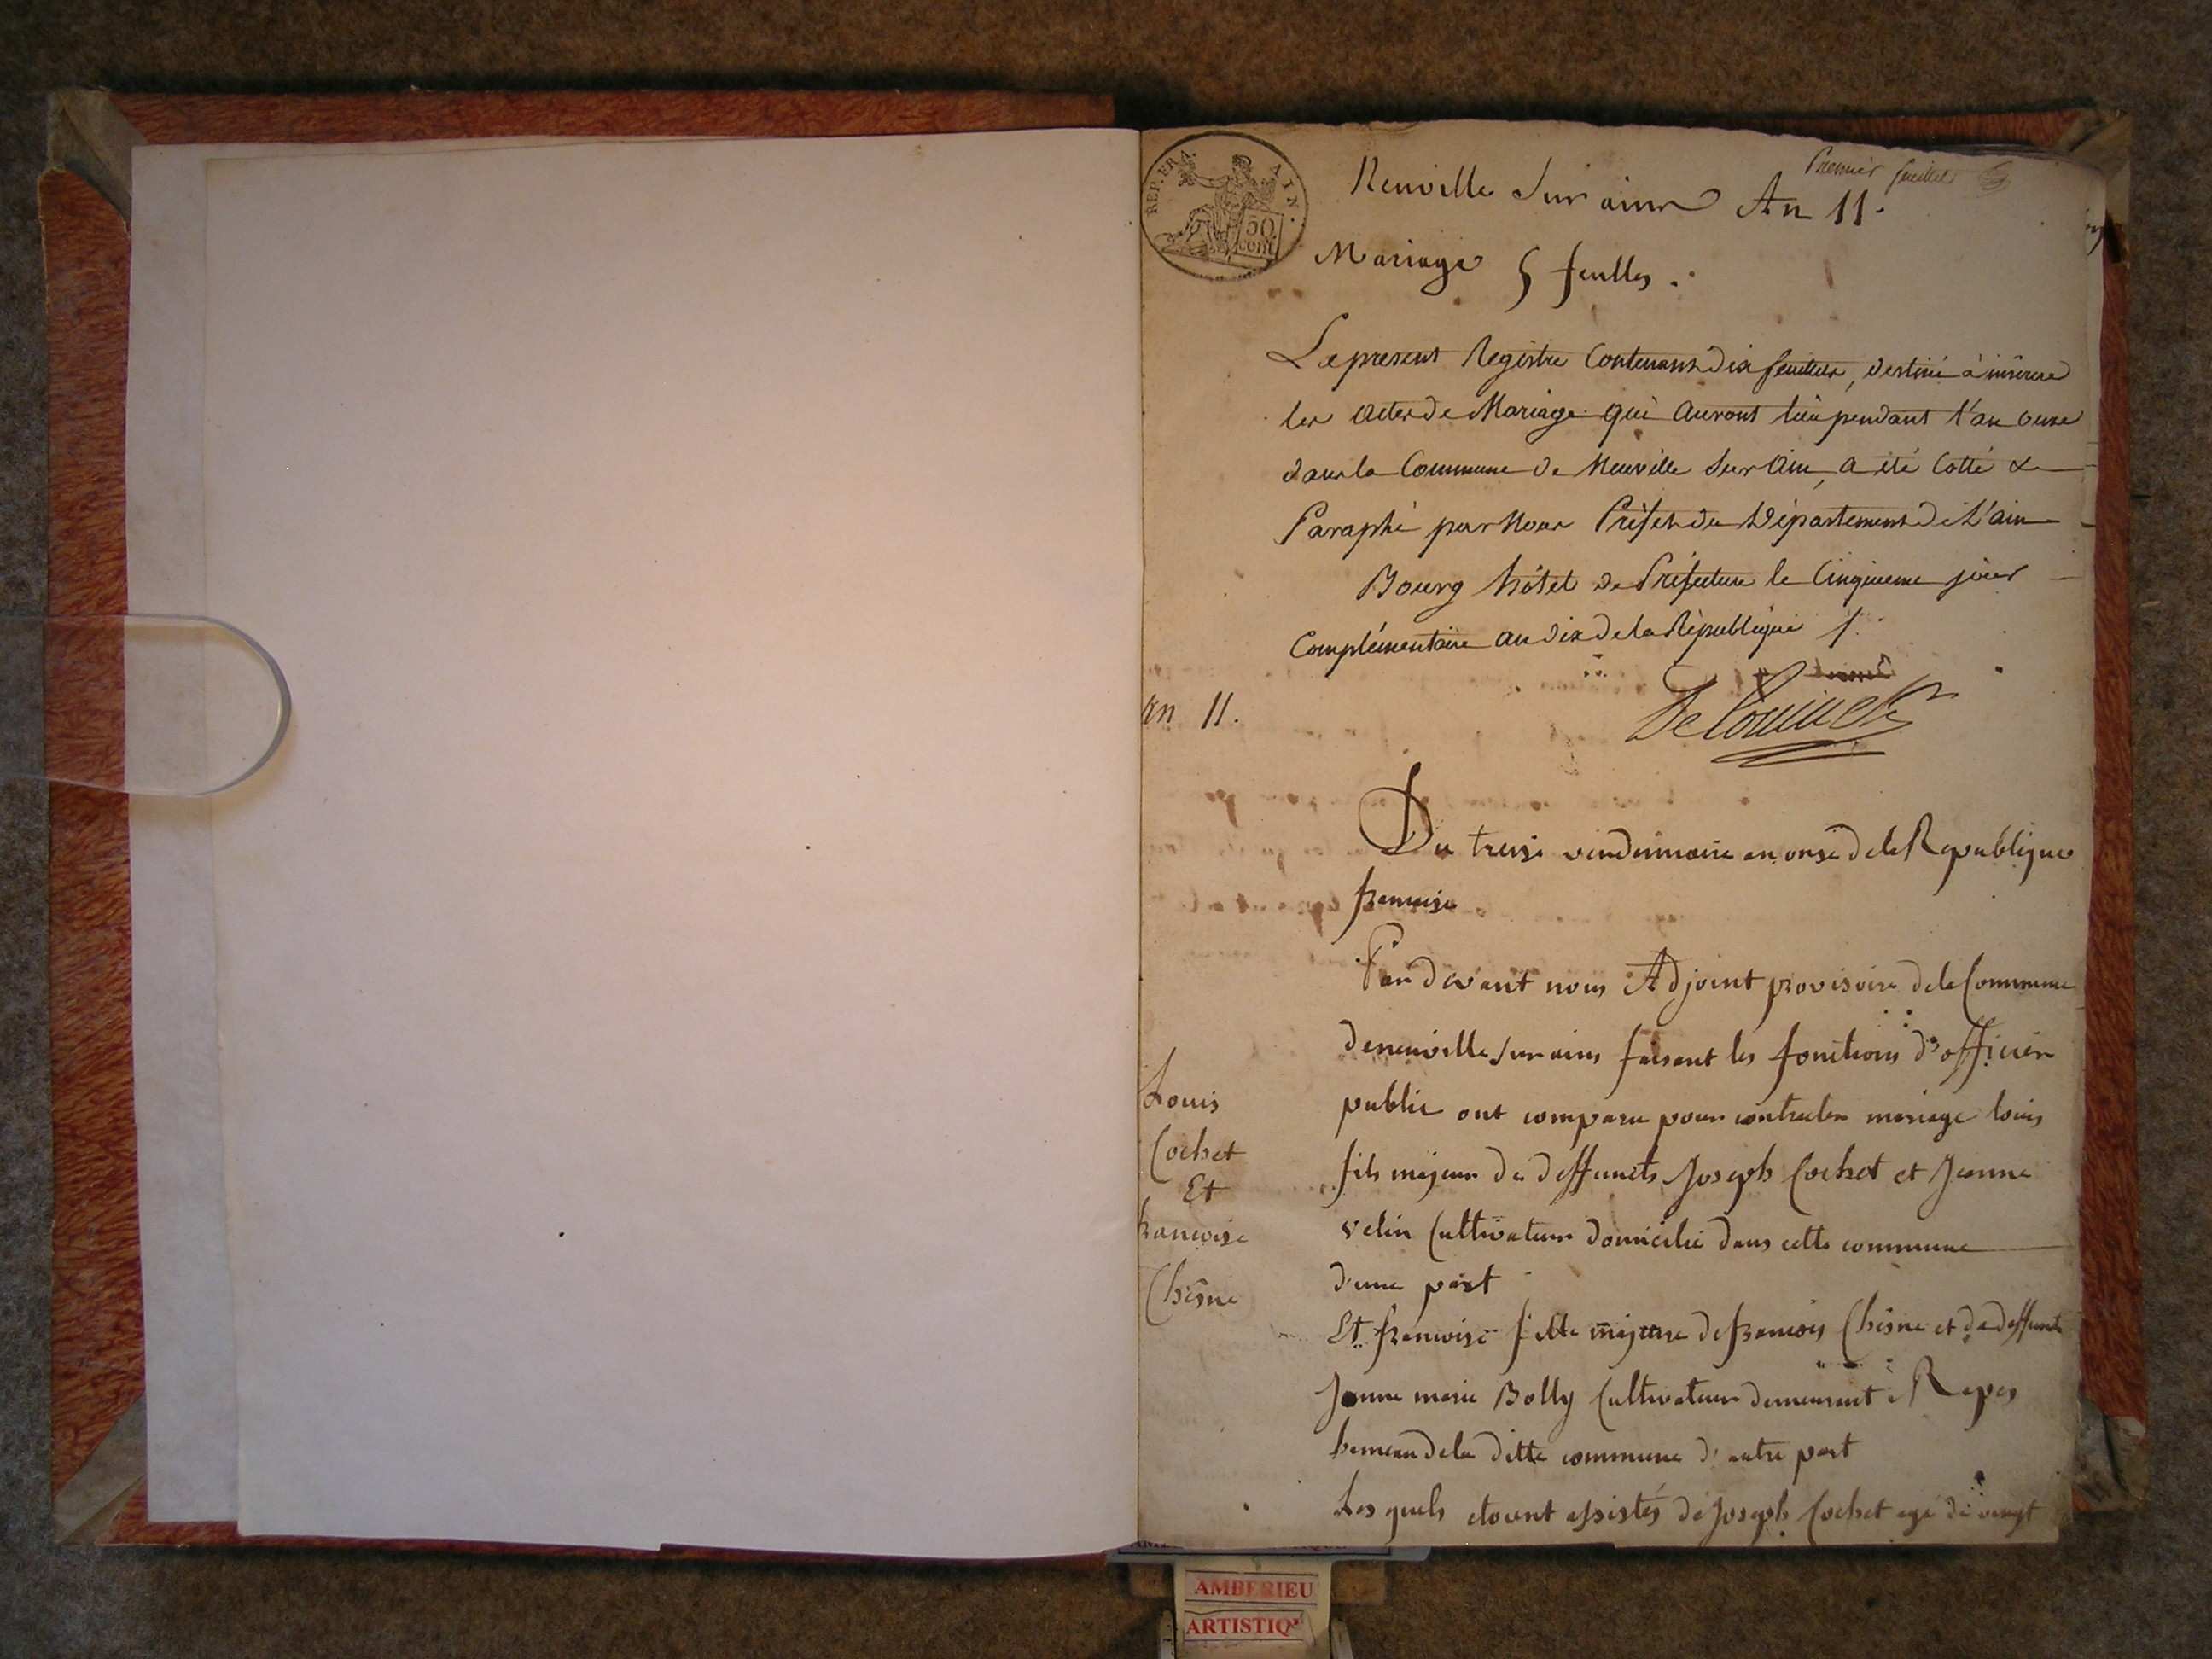 REP. FRA. AIN.
50 cent
Premier feuillet
Neuville sur ains An 11.
Mariage 5 feulles.
Le present Registre Contenant dix feuillets, destiné à inscrire
les actes de Mariage qui auront lieu pendant l'an onze
dans la Commune de Neuville sur Ain, a été Cotté &
Paraphé par Nous Préfet du Département de L'ain
Bourg hôtel de Préfecture le Cinquieme jour
Complémentaire an dix de la République
An 11.
Du treise vendemiaire an onse de la Republique
francoise
Par devant nous Adjoint provisoire de la Commune
de neuville sur ains faisant les fonctions d'officier
public ont comparu pour contracter mariage louis
fils majeur de deffuncts Joseph Cochet et Jeanne
velin Cultivateur domicilié dans cette commune
d'une part
Et francoise fille majeure de francois Chêsne et de deffuncte
Jeanne marie Bolly Cultivateur demeurant à Rapes
hameau de la ditte commune d'autre part
Les quels etoient assistés de Joseph Cochet agé de vingt
Louis
Cochet
Et
francoise
Chêsne
AMBERIEU
ARTISTIQ